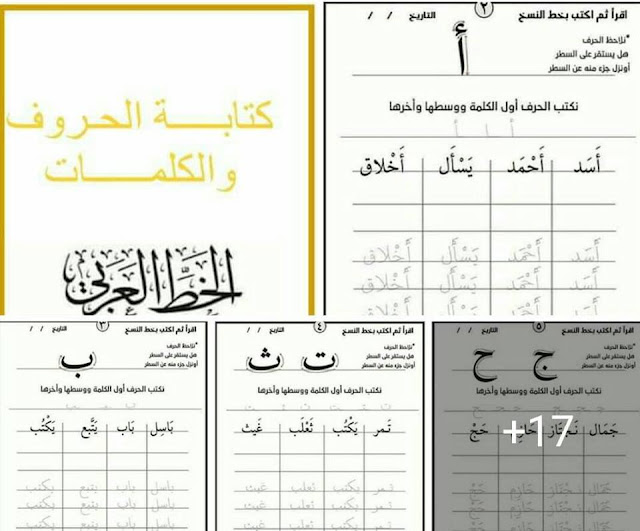 كتابـــة الحروف
والكلمـــات
الخط العربي
اقرأ ثم اكتب بخط النسخ
٢
التاريخ / /
*نلاحظ الحرف
هل يستقر على السطر
أونزل جزء منه عن السطر
أ
نكتب الحرف أول الكلمة ووسطها وأخرها
أ ـأ أ
أَسَد أَحْمَد يَسْأَل أَخْلاق
أَسَد أَحْمَد يَسْأَل أَخْلاق
أَسَد أَحْمَد يَسْأَل أَخْلاق
أَسَد أَحْمَد يَسْأَل أَخْلاق
اقرأ ثم اكتب بخط النسخ
٣
التاريخ / /
*نلاحظ الحرف
هل يستقر على السطر
أونزل جزء منه عن السطر
ب
نكتب الحرف أول الكلمة ووسطها وأخرها
بَاسِل بَاب يَتَّبع يَكْتُب
باسل باب يتبع يكتب
باسل باب يتبع يكتب
اقرأ ثم اكتب بخط النسخ
٤
التاريخ / /
*نلاحظ الحرف
هل يستقر على السطر
أونزل جزء منه عن السطر
ت ث
نكتب الحرف أول الكلمة ووسطها وأخرها
تَمر يَكْتُب ثَعْلَب غَيث
تمر يكتب ثعلب غيث
تمر يكتب ثعلب غيث
اقرأ ثم اكتب بخط النسخ
٥
التاريخ / /
*نلاحظ الحرف
هل يستقر على السطر
أونزل جزء منه عن السطر
ج ح
نكتب الحرف أول الكلمة ووسطها وأخرها
جَمَال حَجّ
+17